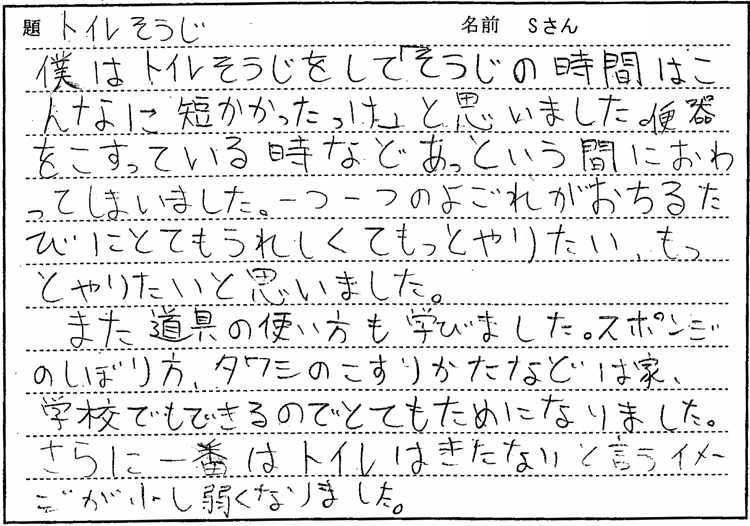 題 トイレそうじ 名前 Sさん
僕はトイレそうじをして「そうじの時間はこ
んなに短かかったっけ」と思いました。便器
をこすっている時などあっという間におわ
ってしまいました。一つ一つのよごれがおちるた
びにとてもうれしくてもっとやりたい、もっ
とやりたいと思いました。
また道具の使い方も学びました。スポンジ
のしぼり方、タワシのこすりかたなどは家、
学校でもできるのでとてもためになりました。
さらに一番はトイレはきたないと言うイメー
ジが少し弱くなりました。